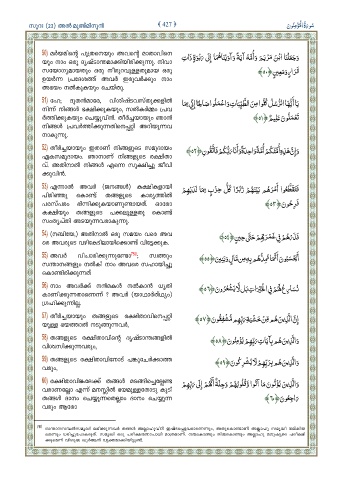 സൂറ: (23) അൽ മുഅ്മിനൂൻ
﴾ 427 ﴿
سورة المؤمنون
50) മർയമിന്റെ പുത്രനെയും അവന്റെ മാതാവിനെ
യും നാം ഒരു ദൃഷ്ടാന്തമാക്കിയിരിക്കുന്നു. നിവാ
സയോഗ്യമായതും ഒരു നീരുറവുള്ളതുമായ ഒരു
ഉയർന്ന പ്രദേശത്ത് അവർ ഇരുവർക്കും നാം
അഭയം നൽകുകയും ചെയ്തു.
وَجَعَلْنَا ابْنَ مَرْيَمَ وَأُمَّهُ آيَةً وَآوَيْنَاهُمَا إِلَىٰ رَبْوَةٍ ذَاتِ
قَرَارٍ وَمَعِينٍ ﴿٥٠﴾
51) ഹേ; ദൂതൻമാരേ, വിശിഷ്ടവസ്തുക്കളിൽ
നിന്ന് നിങ്ങൾ ഭക്ഷിക്കുകയും, സൽകർമ്മം പ്രവ
ർത്തിക്കുകയും ചെയ്യുവിൻ. തീർച്ചയായും ഞാൻ
നിങ്ങൾ പ്രവർത്തിക്കുന്നതിനെപ്പറ്റി അറിയുന്നവ
നാകുന്നു.
يَا أَيُّهَا الرُّسُلُ كُلُوا مِنَ الطَّيِّبَاتِ وَاعْمَلُوا صَالِحًا إِنِّي بِمَا
تَعْمَلُونَ عَلِيمٌ ﴿٥١﴾
52) തീർച്ചയായും ഇതാണ് നിങ്ങളുടെ സമുദായം
ഏകസമുദായം. ഞാനാണ് നിങ്ങളുടെ രക്ഷിതാ
വ്. അതിനാൽ നിങ്ങൾ എന്നെ സൂക്ഷിച്ചു ജീവി
ക്കുവിൻ.
وَإِنَّ هَٰذِهِ أُمَّتُكُمْ أُمَّةً وَاحِدَةً وَأَنَا رَبُّكُمْ فَاتَّقُونِ ﴿٥٢﴾
53) എന്നാൽ അവർ (ജനങ്ങൾ) കക്ഷികളായി
പിരിഞ്ഞു കൊണ്ട് തങ്ങളുടെ കാര്യത്തിൽ
പരസ്പരം ഭിന്നിക്കുകയാണുണ്ടായത്. ഓരോ
കക്ഷിയും തങ്ങളുടെ പക്കലുള്ളതു കൊണ്ട്
സംതൃപ്തി അടയുന്നവരാകുന്നു.
فَتَقَطَّعُوا أَمْرَهُم بَيْنَهُمْ زُبُرًا كُلُّ حِزْبٍ بِمَا لَدَيْهِمْ
فَرِحُونَ ﴿٥٣﴾
54) (നബിയേ,) അതിനാൽ ഒരു സമയം വരെ അവ
രെ അവരുടെ വഴികേടിലായിക്കൊണ്ട് വിട്ടേക്കുക.
فَذَرْهُمْ فِي غَمْرَتِهِمْ حَتَّىٰ حِينٍ ﴿٥٤﴾
55) അവർ വിചാരിക്കുന്നുണ്ടോ സ്വത്തും
സന്താനങ്ങളും നൽകി നാം അവരെ സഹായിച്ചു
കൊണ്ടിരിക്കുന്നത്
أَيَحْسَبُونَ أَنَّمَا نُمِدُّهُم بِهِ مِن مَّالٍ وَبَنِينَ ﴿٥٥﴾
56) നാം അവർക്ക് നൻമകൾ നൽകാൻ ധൃതി
കാണിക്കുന്നതാണെന്ന് ? അവർ (യാഥാർത്ഥ്യം)
ഗ്രഹിക്കുന്നില്ല.
نُسَارِعُ لَهُمْ فِي الْخَيْرَاتِ بَل لَّا يَشْعُرُونَ ﴿٥٦﴾
57) തീർച്ചയായും തങ്ങളുടെ രക്ഷിതാവിനെപ്പറ്റി
യുള്ള ഭയത്താൽ നടുങ്ങുന്നവർ,
إِنَّ الَّذِينَ هُم مِّنْ خَشْيَةِ رَبِّهِم مُّشْفِقُونَ ﴿٥٧﴾
58) തങ്ങളുടെ രക്ഷിതാവിന്റെ ദൃഷ്ടാന്തങ്ങളിൽ
വിശ്വസിക്കുന്നവരും,
وَالَّذِينَ هُم بِآيَاتِ رَبِّهِمْ يُؤْمِنُونَ ﴿٥٨﴾
59) തങ്ങളുടെ രക്ഷിതാവിനോട് പങ്കുചേർക്കാത്ത
വരും,
وَالَّذِينَ هُم بِرَبِّهِمْ لَا يُشْرِكُونَ ﴿٥٩﴾
60) രക്ഷിതാവിങ്കലേക്ക് തങ്ങൾ മടങ്ങിപ്പോകേണ്ട
വരാണല്ലോ എന്ന് മനസ്സിൽ ഭയമുള്ളതോടു കൂടി
തങ്ങൾ ദാനം ചെയ്യുന്നതെല്ലാം ദാനം ചെയ്യുന്ന
വരും ആരോ
وَالَّذِينَ يُؤْتُونَ مَا آتَوا وَّقُلُوبُهُمْ وَجِلَةٌ أَنَّهُمْ إِلَىٰ رَبِّهِمْ
رَاجِعُونَ ﴿٦٠﴾